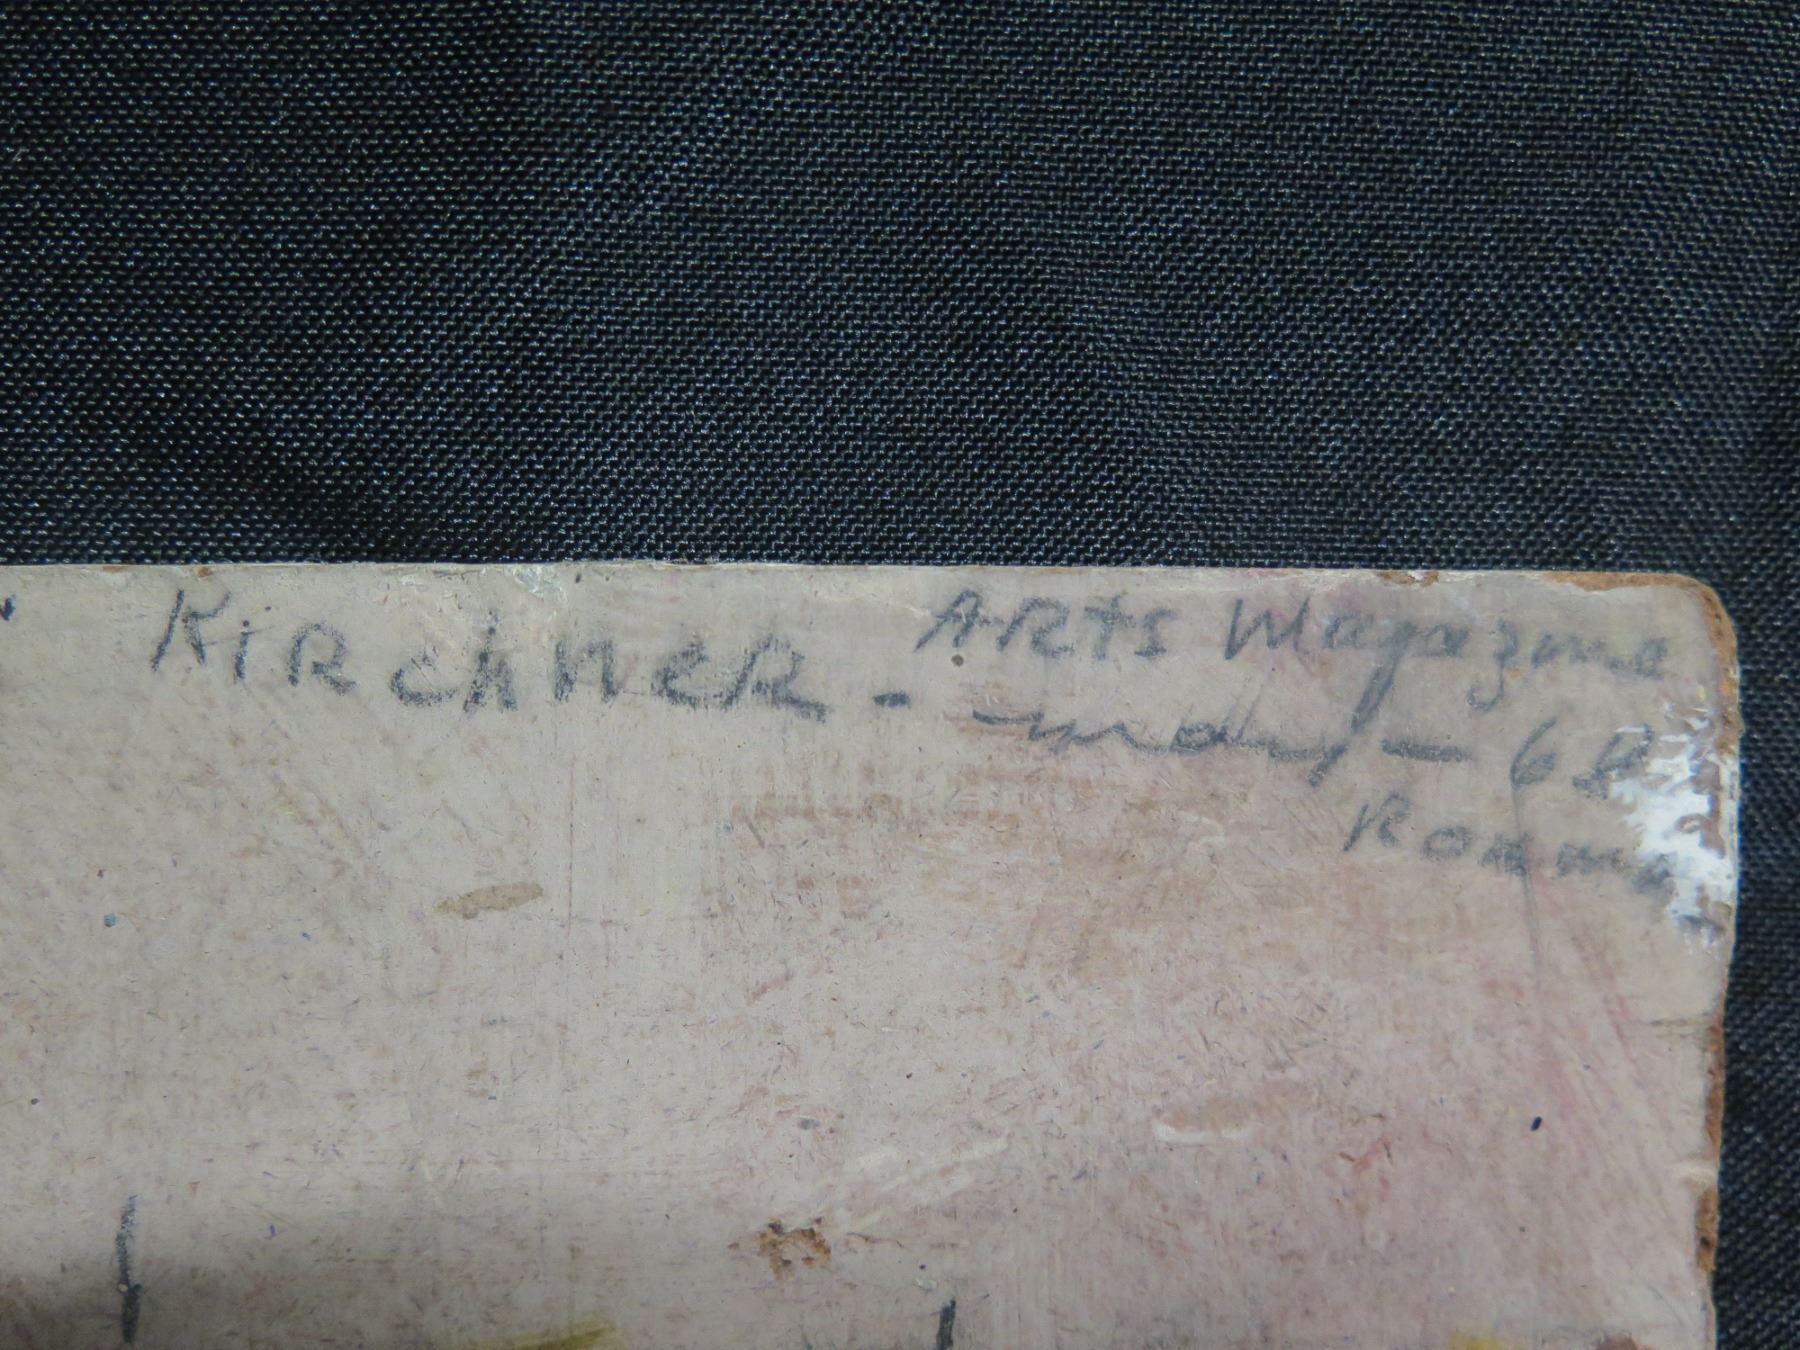 KiRchNeR - ARts Magazine
- may - 68